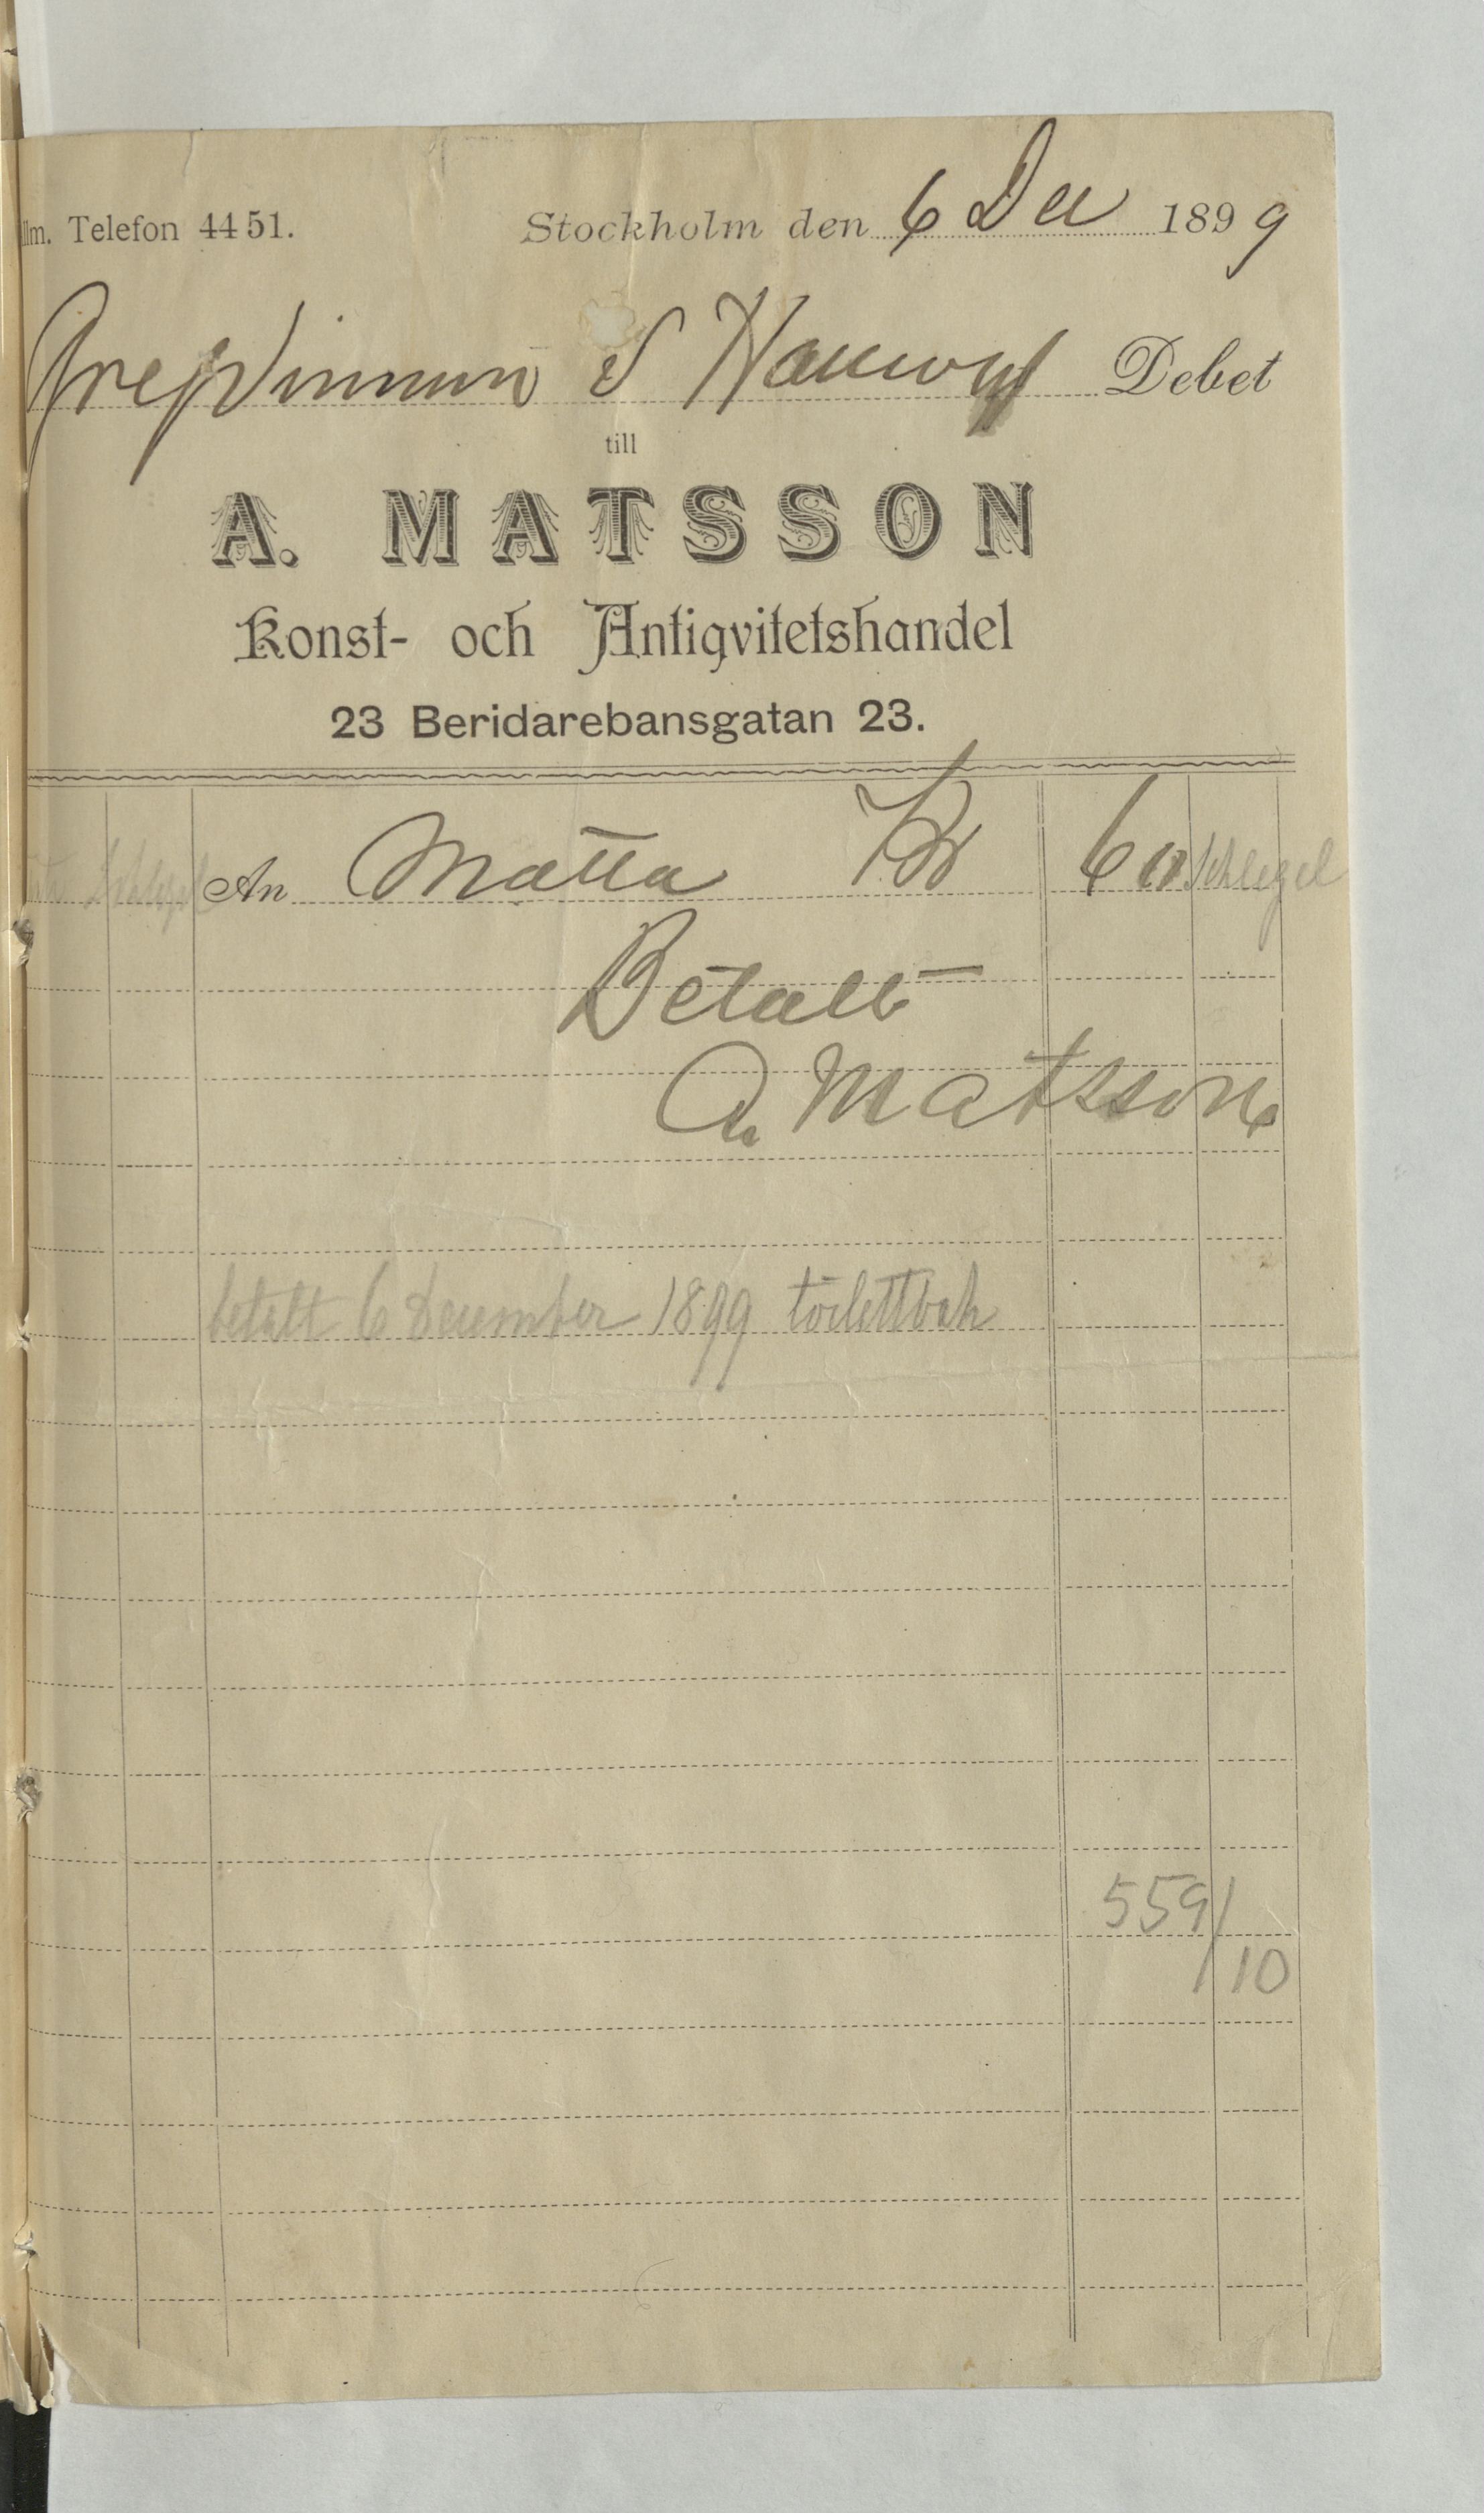 llm. Telefon 4451. Stockholm den 6 Dec 1899
Grefvinnan v Hallwyl Debet
till
A. MATSSON
Konst- och Antiqvitetshandel
23 Beridarebansgatan 23.
An Matta Kr 60 Schlegel
Betalt
A. Matsson
betalt 6 December 1899
559/
/10